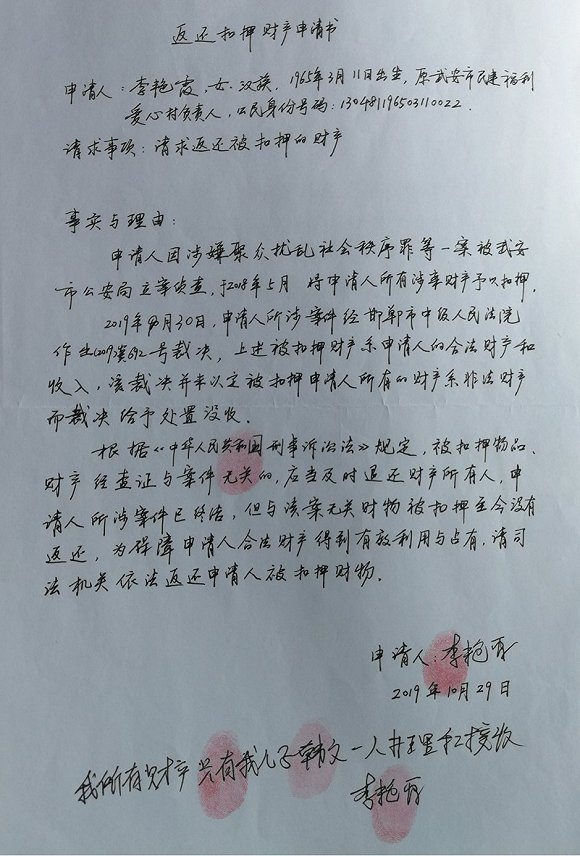 返还扣押财产申请书
申请人：李艳霞，女，汉族，1965年3月11日出生，原武安市民建福利
爱心村负责人，公民身份号码：130481196503110022.
请求事项：请求返还被扣押的财产
事实与理由：
申请人因涉嫌聚众扰乱社会秩序罪等一案被武安
市公安局立案侦查，于2018年5月将申请人所有涉案财产予以扣押.
2019年8月30日，申请人所涉案件经邯郸市中级人民法院
作出 692号裁决，上述被扣押财产系申请人的合法财产和
收入，该裁决并未认定被扣押申请人所有的财产系非法财产
而裁决给予处置没收.
根据《中华人民共和国刑事诉讼法》规定，被扣押物品、
财产经查证与案件无关的，应当及时退还财产所有人，申
请人所涉案件已终结，但与该案无关财物被扣押至今没有
返还，为保障申请人合法财产得到有效利用与占有，请司
法机关依法返还申请人被扣押财物.
申请人：李艳霞
2019年10月29日
我所有财产只有我儿子韩文一人 接收
李艳霞